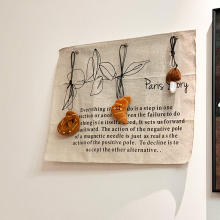 Paris ry
Everything do is a step in one
ction or anot en the failure to do
hing is in itself eed, It sets us forward
ward. The action of the negative pole
of a magnetic needle is just as real as the
action of the positive pole. To decline is to
accept the other alternative...